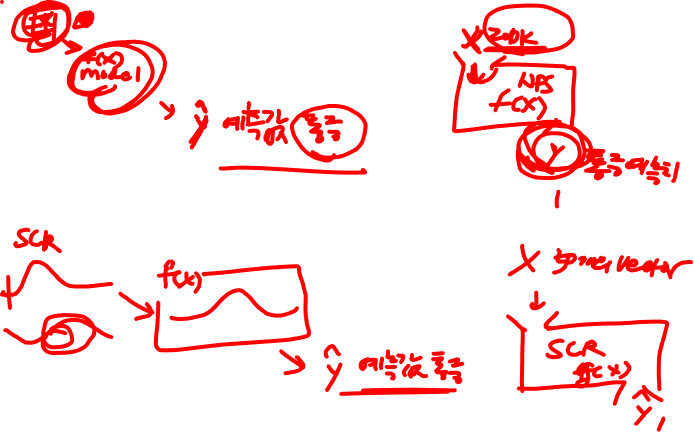 f(x)
model
ŷ 예측값 통증
X 200K
NPS
f(x)
y
통증 예측치
1
SCR
f(x)
ŷ 예측값 통증
X 30개의 vector
SCR
f(x)
ŷ 1